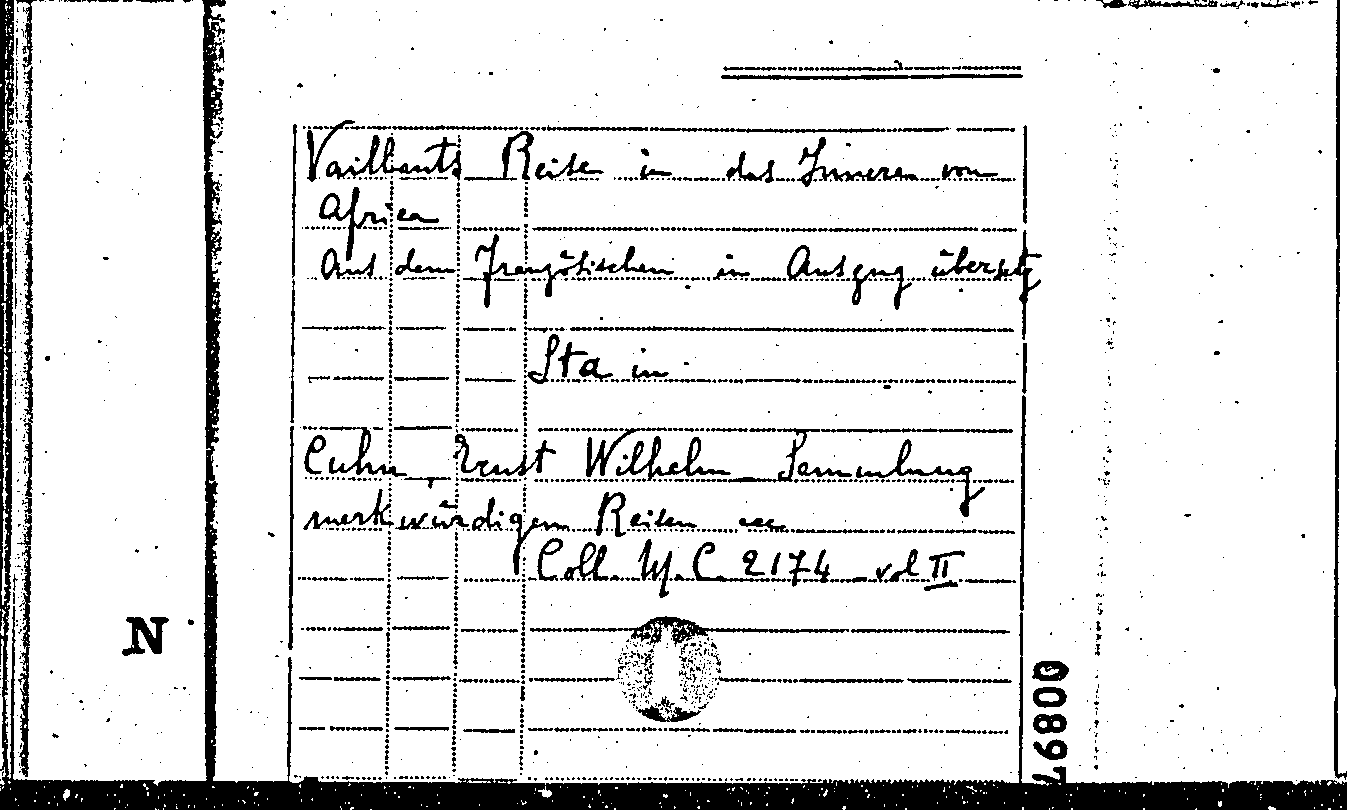 Vaillants Reise in das Innere von
Africa
Aus dem Französischen in Auszug übersetz
Sta in
Cuhn, Ernst Wilhelm Sammlung
merkwürdigen Reisen
Coll. C. 2174 vol II
N
00897